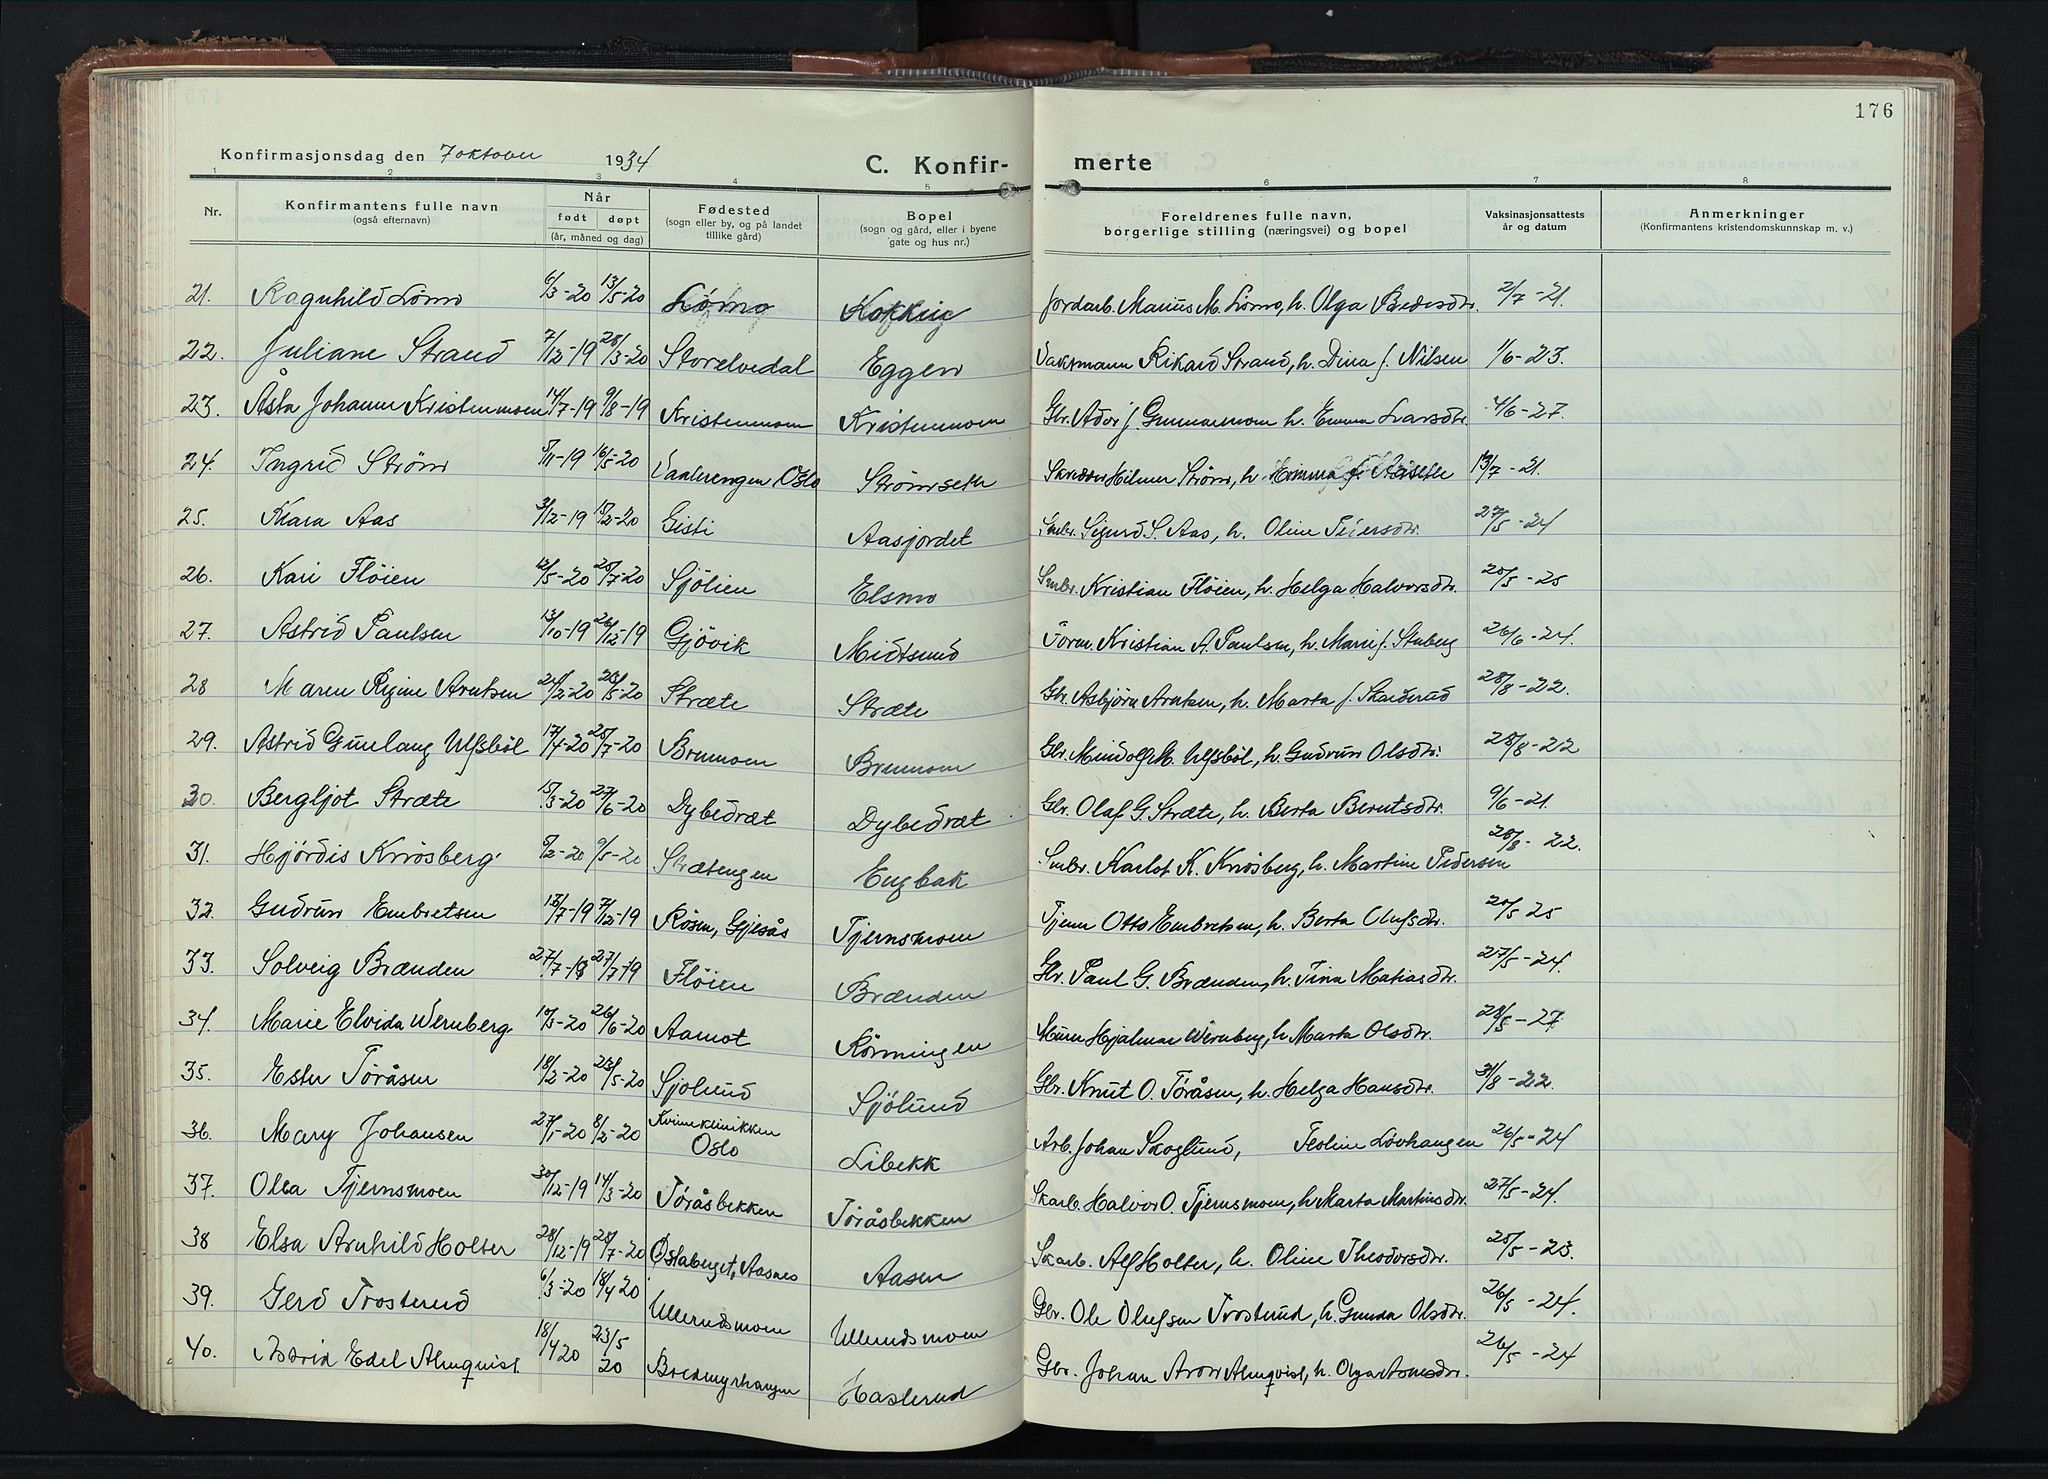 176
Konfirmasjonsdag den 7 oktober 1934
C. Konfir- merte
1 2 3 4 5 6 7 8
Nr. Konfirmantens fulle navn (også efternavn) Når født døpt (år, måned og dag) Fødested (sogn eller by, og på landet tillike gård) Bopel (sogn og gård, eller i byene gate og hus nr.) Foreldrenes fulle navn, borgerlige stilling (næringsvei) og bopel Vaksinasjonsattests år og datum Anmerkninger (Konfirmantens kristendomskunnskap m. v.)
21. Ragnhild Lömo 6/3-20 13/5-20 Lömo Jordarb. Marius M. Lömo, h. Olga Pedersdtr. 2/7-21.
22. Juliane Strand 7/12-19 28/3-20 Storelvedal Eggen Vaktmann Rikard Strand, h. Dina f. Nilsen 1/6-23.
23. Åsta Johanne Kristenmoen 14/7-19 9/8-19 Kristenmoen Kristenmoen Gbr. f. Gunnarsmoen h. Emma Ivarsdtr. 4/6-27.
24. Ingrid Ström 5/11-19 16/5-20 Vaalerengen Oslo Strömseth Hilmar Ström, h. 13/7-21.
25. Klara Aas 3/12-19 15/2-20 Gisti Aasjordet Smbr. Sigurd S. Aas, h. Oline Pedersdtr. 27/5-24
26. Kari Flöien 12/5-20 25/7-20 Sjölien Elsmo Smbr. Kristian Flöien, h. Helga Halvorsdtr. 25/5-25
27. Astrid Paulsen 13/10-19 26/12-19 Gjövik Midtsund Form. Kristian A. Paulsen, h. Marie f. Stuberg 26/6-24.
28 Maren Regine Arntsen 24/2-20 23/5-20 Stræte Stræte Gbr. Asbjörn Arntsen, h. Marta f. Skarderud 28/8-22.
29. Astrid Gunlaug Ulfsböl 17/4-20 25/7-20 Brumoen Brumoen Gbr. Mindolf M. Ulfsböl, h. Gudrun Olsdtr. 28/8-22
30. Bergljot Stræte 15/3-20 27/6-20 Dybedræt Dybedræt Gbr. Olaf G. Stræte, h. Berta Berntsdtr. 9/6-21.
31. Hjördis Knosberg 8/2-20 9/5-20 Strætengen Engbak Smbr. Karlot K. Knosberg, h. Martine Pedersen 28/8-22.
32. Gudrun Embretsen 18/7-19 7/12-19 Rösen, Gjesås Tjernsmoen Tjener Otto Embretsen, h. Berta Olufsdtr. 25/5-25
33. Solveig Brænden 27/7-18 27/7-19 Flöien Brænden Gbr. Paul G. Brænden, h. Tina Matiasdtr. 27/5-24.
34. Marie Elvida Wernberg 10/3-20 26/6-20 Aamot Körningen Murer Hjalmar Wernberg, h. Marta Olsdtr. 28/5-27
35. Ester Töråsen 18/2-20 23/5-20 Sjölund Sjölund Gbr. Knut O. Töråsen, h. Helga Hansdtr. 31/8-22.
36. Mary Johansen 27/1-20 8/2-20 Kvineklinikken Oslo Libekk Arb. Johan Skoglund, Teoline Lövhaugen 26/5-24
37. Olea Tjernsmoen 30/12-19 14/3-20 Töråsbekken Töråsbekken Skarb. Halvor O. Tjernsmoen, h. Marta Martinsdtr. 27/5-24.
38 Elsa Arnhild Holter 28/12-19 25/7-20 Östaberget, Aasnes Aasen Skarb. Alf Holter, h. Oline Theodorsdtr. 25/5-23.
39. Gerd Trosterud 6/3-20 18/4 20 Ullerudsmoen Ullerudsmoen Gbr. Ole Olufsen Trosterud, h. Gunda Olsdtr. 26/5-24.
40. Astrid Edel Almquist. 18/4 20 23/5 20 Bredmyrhaugen Haslerud Gbr. Johan Aron Almqvist, h. Olga 26/5-24